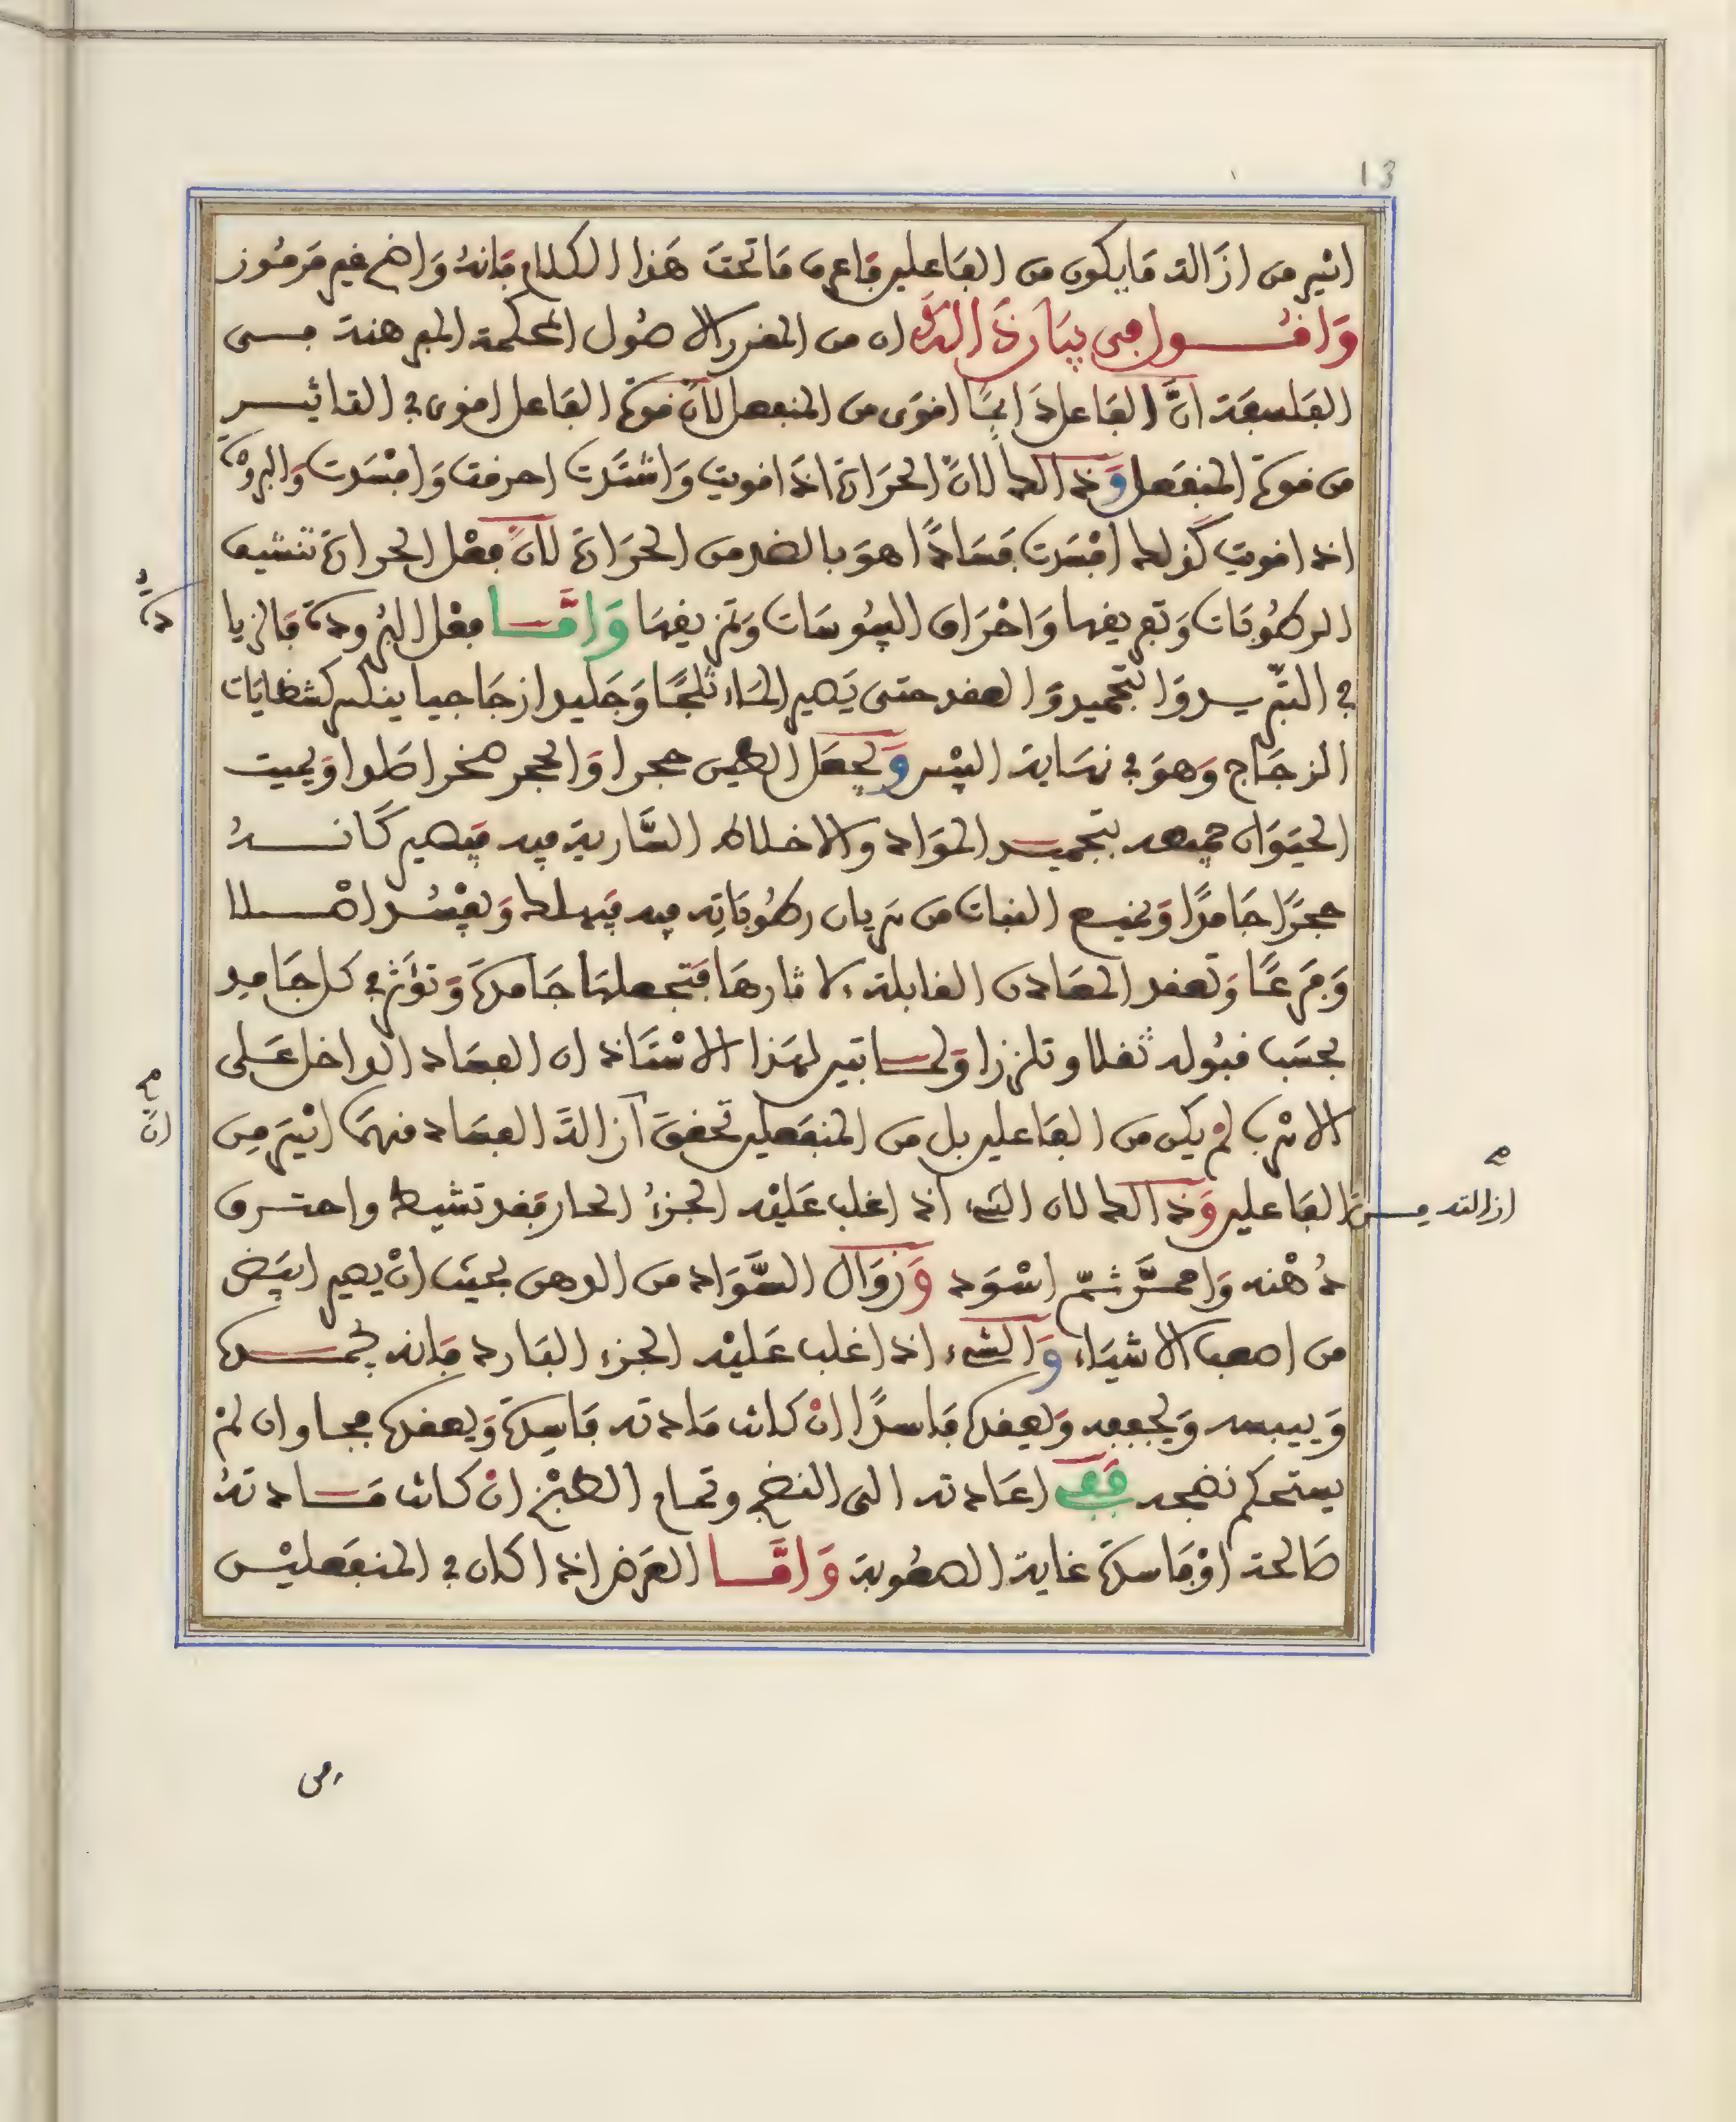 13
ايسر من ازالة ما يكون من الفاعلين فاعرف ما تحت هذا الكلام فانه واضح غير مرموز
واقـــول في بيان ذالك ان من المقرر الاصول المحكمة المبرهنة فــى
الفلسفة ان الفاعل دايما اقوى من المنفعل لان قوة الفاعل اقوى في التاثيــر
من قوة المنفعل وذالك لان الحرارة اذا قويت واشتدت احرقت وافسدت والبرو
اذا قويت كذلك افسدت فسادا هو بالضد من الحرارة لان فعل الحرارة تنشيف
دة
الرطوبات وتفريقها واحراق اليبوسات وتمزيقها وامــا فعل البرودة فالزيا
في التبريــد والتجميد والعقد حتى يصير الماء ثلجا وجليدا زجاجيا ينكسر كشظايات
الزجاج وهو في نهاية اليبس ويجعل الطين حجرا والحجر صخرا صلدا ويميت
الحيوان جميعه بتجميــد المواد والاخلاط السارية فيه فيصير كانــه
حجرا جامدا ويمنــع النبات من سريان رطوباته فيه فيهلك ويفسد اصــلا
وفرعا وتعقد المعادن القابلة لاثارها فتجعلها جامدة وتوثر في كل جامد
بحسب قبوله ثقلا وتلززا ولمــا تبين لهذا الاستاذ ان الفساد الداخل على
ان
الاسرب لم يكن من الفاعلين بل من المنفعلين تحقق ازالة الفساد منهما ايسر من
ازالته مــن
الفاعلين وذالك لان الشيء اذا غلب عليه الجزء الحار فقد تشيط واحتــرق
دهنه واحمــر ثم اسود وزوال السواد من الدهن بحيث ان يصير ابيض
من اصعب الاشياء والشيء اذا غلب عليه الجزء البارد فانه يجمــده
وييبسه ويجففه ويعقده فاسدا ان كانت مادته فاسدة ويعقده فجا وان لم
يستحكم نضجه ففي اعادته الى النضج وتمام الطبخ ان كانت مــادته
صالحة او فاسدة غاية الصعوبة وامــا العرض اذا كان في المنفعليــن
في